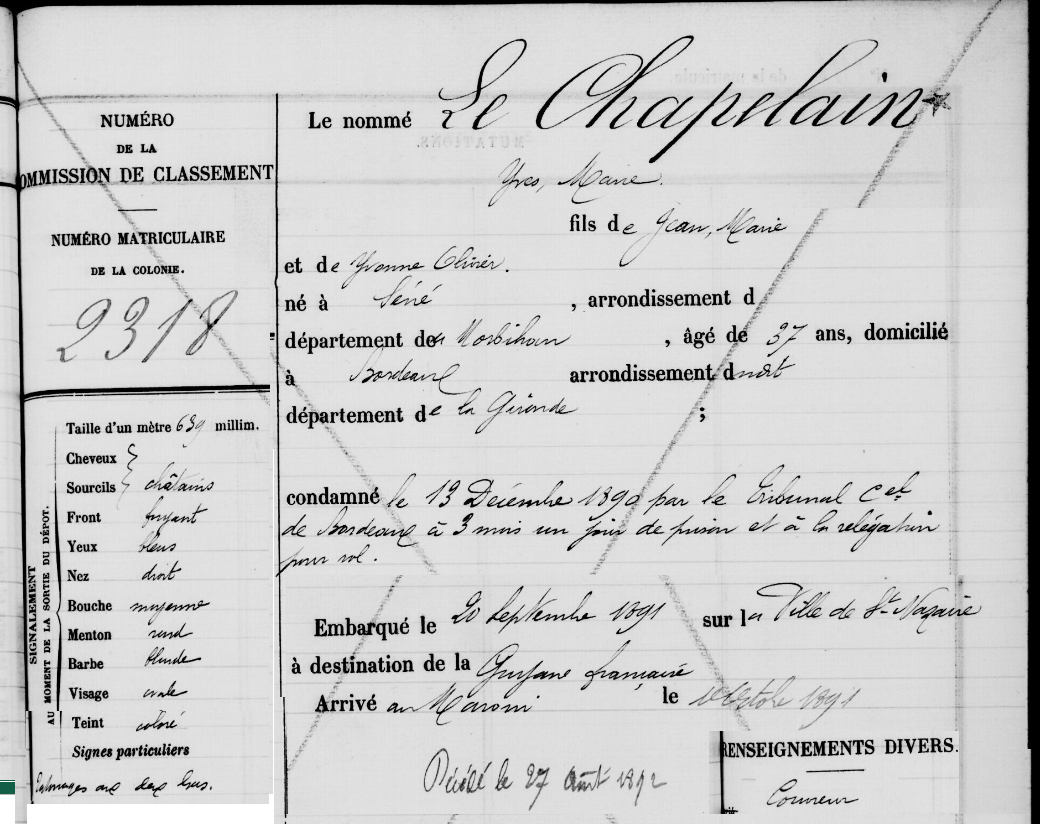 NUMÉRO
DE LA
OMMISSION DE CLASSEMENT
NUMÉRO MATRICULAIRE
DE LA COLONIE.
2318
SIGNALEMENT
AU MOMENT DE LA SORTIE DU DÉPOT.
Taille d'un mètre 639 millim.
Cheveux
Sourcils châtains
Front fuyant
Yeux bleus
Nez droit
Bouche moyenne
Menton rond
Barbe blonde
Visage ovale
Teint coloré
Signes particuliers
Tatouages aux deux bras.
Le nommé Le Chapelain
Yves, Marie.
fils de Jean, Marie
et de Yvonne Olivier.
né à Séné , arrondissement d
département du Morbihan , âgé de 37 ans, domicilié
à Bordeaux arrondissement dudit
département de la Gironde ;
condamné le 13 Décembre 1890 par le Tribunal Cel
de Bordeaux à 3 mois un jour de prison et à la relégation
pour vol.
Embarqué le 20 Septembre 1891 sur la Ville de St Nazaire
à destination de la Guyane française
Arrivé au Maroni le Octobre 1891
Décédé le 27 Août 1892
RENSEIGNEMENTS DIVERS.
Couvreur